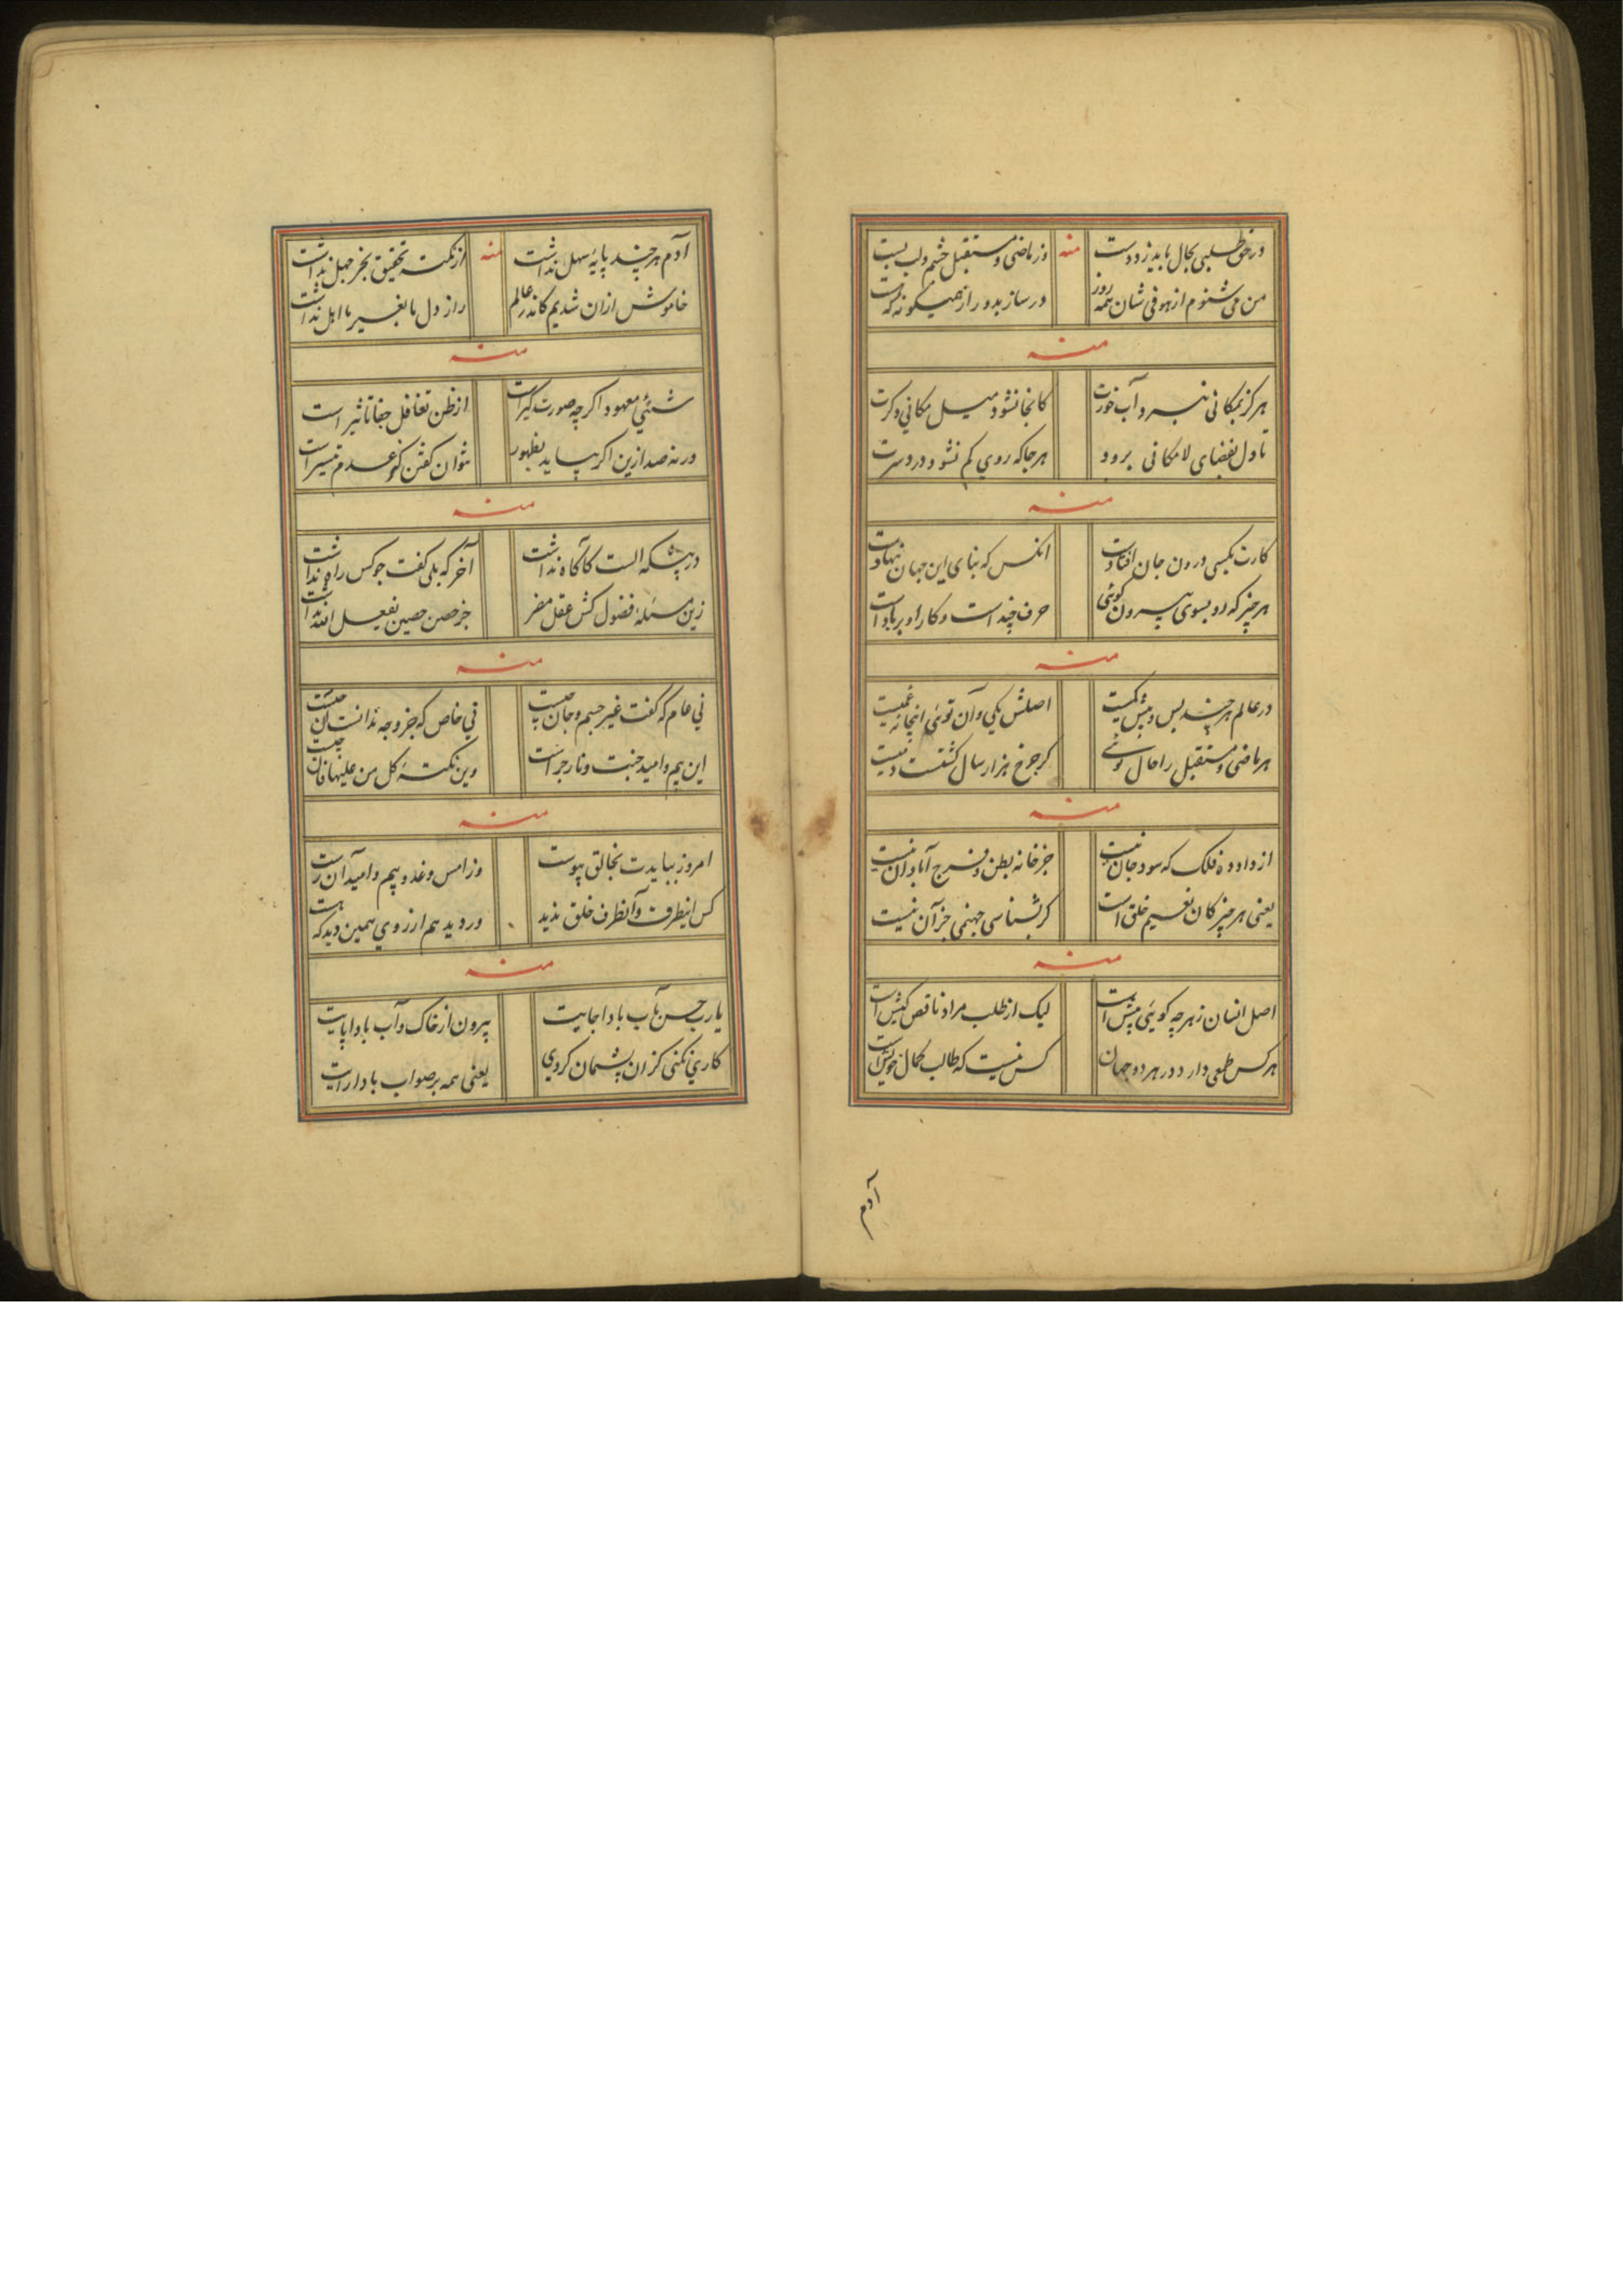 در حق طلبی بحال باید زد دست منه وز ماضی و مستقبل چشم و لب بست
من می شنوم از هو فی شان همه روز در ساز بدو راز همیکونه که هست
منه
هرکز بمکانی نبرد آب خورت کانجا نشود میل مکانی دکرت
تا دل بفضای لامکانی نرود هرجا که روی کم نشود دردسرت
منه
کارت بکسی درون جان افتادست انکس که بنای این جهان بنهادست
هر چیز که رو بسوی بیرون کوئی حرف چند است و کار او بر بادست
منه
در عالم هر چند بس و بیش و کمیست اصلش یکی و آن توئی اینجا نه غمیست
هر ماضی و مستقبل را حال توئی کر چرخ هزار سال کشتست دمیست
منه
از داد و ده فلک که سود جان نیست جز خانه بطن و فرج آبادان نیست
یعنی هر چیز کان نعیم خلق است کر بشناسی جهنمی جز آن نیست
منه
اصل انسان ز هر چه کویئی پیش است لیک از طلب مراد ناقص کیش است
هر کس طمعی دارد در هر دو جهان کس نیست که طالب کمال خویش است
آدم
آدم هر چند پایهٔ سهل نداشت منه از نکتهٔ تحقیق بجز جهل نداشت
خاموش ازان شدیم کاندر عالم راز دل ما بغیر ما اهل نداشت
منه
شیئی معهود اکرچه صورت کیر است از ظن تغافل جفا تاثیر است
ورنه صد ازین اکر بیاید بظهور نتوان کفتن کو عدم تیسر است
منه
در بیشکه الست کآکاه نداشت آخر که بلی کفت چو کس راه نداشت
زین مسئلهٔ فضول کش عقل مفر جز حصن حصین یفعل الله نداشت
منه
نی عام که کفت غیر جسم و جان چیست نی خاص که جز وجه ندانست آن چیست
این بیم و امید جنت و نار چراست وین نکتهٔ کل من علیها فان چیست
منه
امروز ببایدت بخالق پیوست وز امس و غد و بیم و امید آن رست
کس اینطرف و آنطرف خلق ندید ور دید هم از روی همین دید که هست
منه
یارب حسن مآب بادا جایت بیرون از خاک و آب بادا پایت
کاری نکنی کزان پشیمان کردی یعنی همه بر صواب بادا رایت